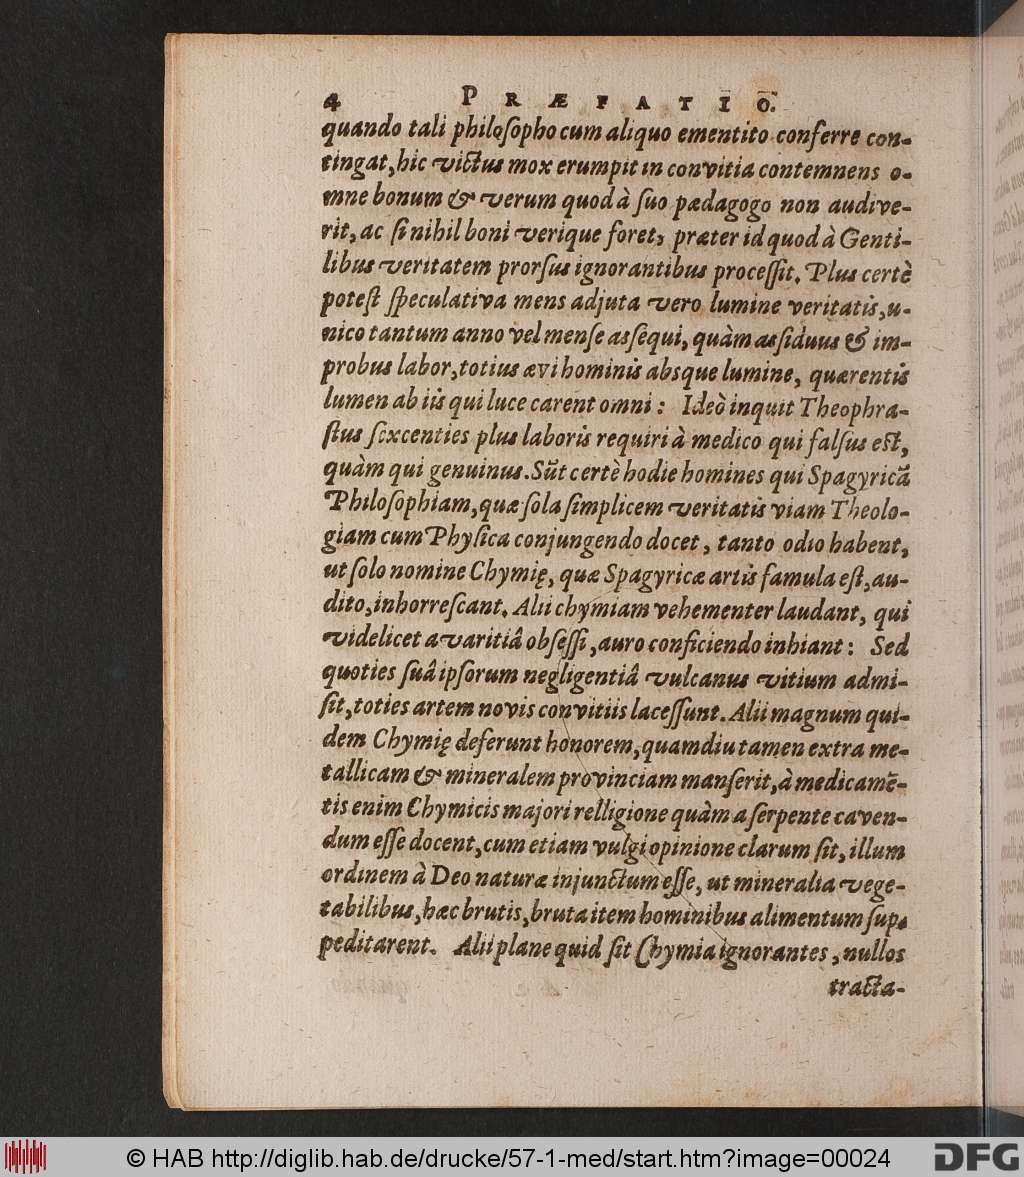 4 PRÆFATIO.
quando tali philosopho cum aliquo ementito conferre con-
tingat, hic victus mox erumpit in convitia contemnens o-
mne bonum & verum quod à suo pædagogo non audive-
rit, ac si nihil boni verique foret, præter id quod à Genti-
libus veritatem prorsus ignorantibus processit. Plus certè
potest speculativa mens adjuta vero lumine veritatis, u-
nico tantum anno vel mense assequi, quàm assiduus & im-
probus labor, totius ævi hominis absque lumine, quærentis
lumen ab iis qui luce carent omni: Ideò inquit Theophra-
stus sexcenties plus laboris requiri à medico qui falsus est,
quàm qui genuinus. Sũt certè hodie homines qui Spagyricã
Philosophiam, quæ sola simplicem veritatis viam Theolo-
giam cum Physica conjungendo docet, tanto odio habent,
ut solo nomine Chymię, quæ Spagyricæ artis famula est, au-
dito, inhorrescant. Alii chymiam vehementer laudant, qui
videlicet avaritiâ obsessi, auro conficiendo inhiant: Sed
quoties suâ ipsorum negligentiâ vulcanus vitium admi-
sit, toties artem novis convitiis lacessunt. Alii magnum qui-
dem Chymię deferunt honorem, quamdiu tamen extra me-
tallicam & mineralem provinciam manserit, à medicamẽ-
tis enim Chymicis majori relligione quàm a serpente caven-
dum esse docent, cum etiam vulgi opinione clarum sit, illum
ordinem à Deo naturæ injunctum esse, ut mineralia vege-
tabilibus, hæc brutis, bruta item hominibus alimentum sup-
peditarent. Alii plane quid sit Chymia ignorantes, nullos
tracta-
© HAB http://diglib.hab.de/drucke/57-1-med/start.htm?image=00024
DFG